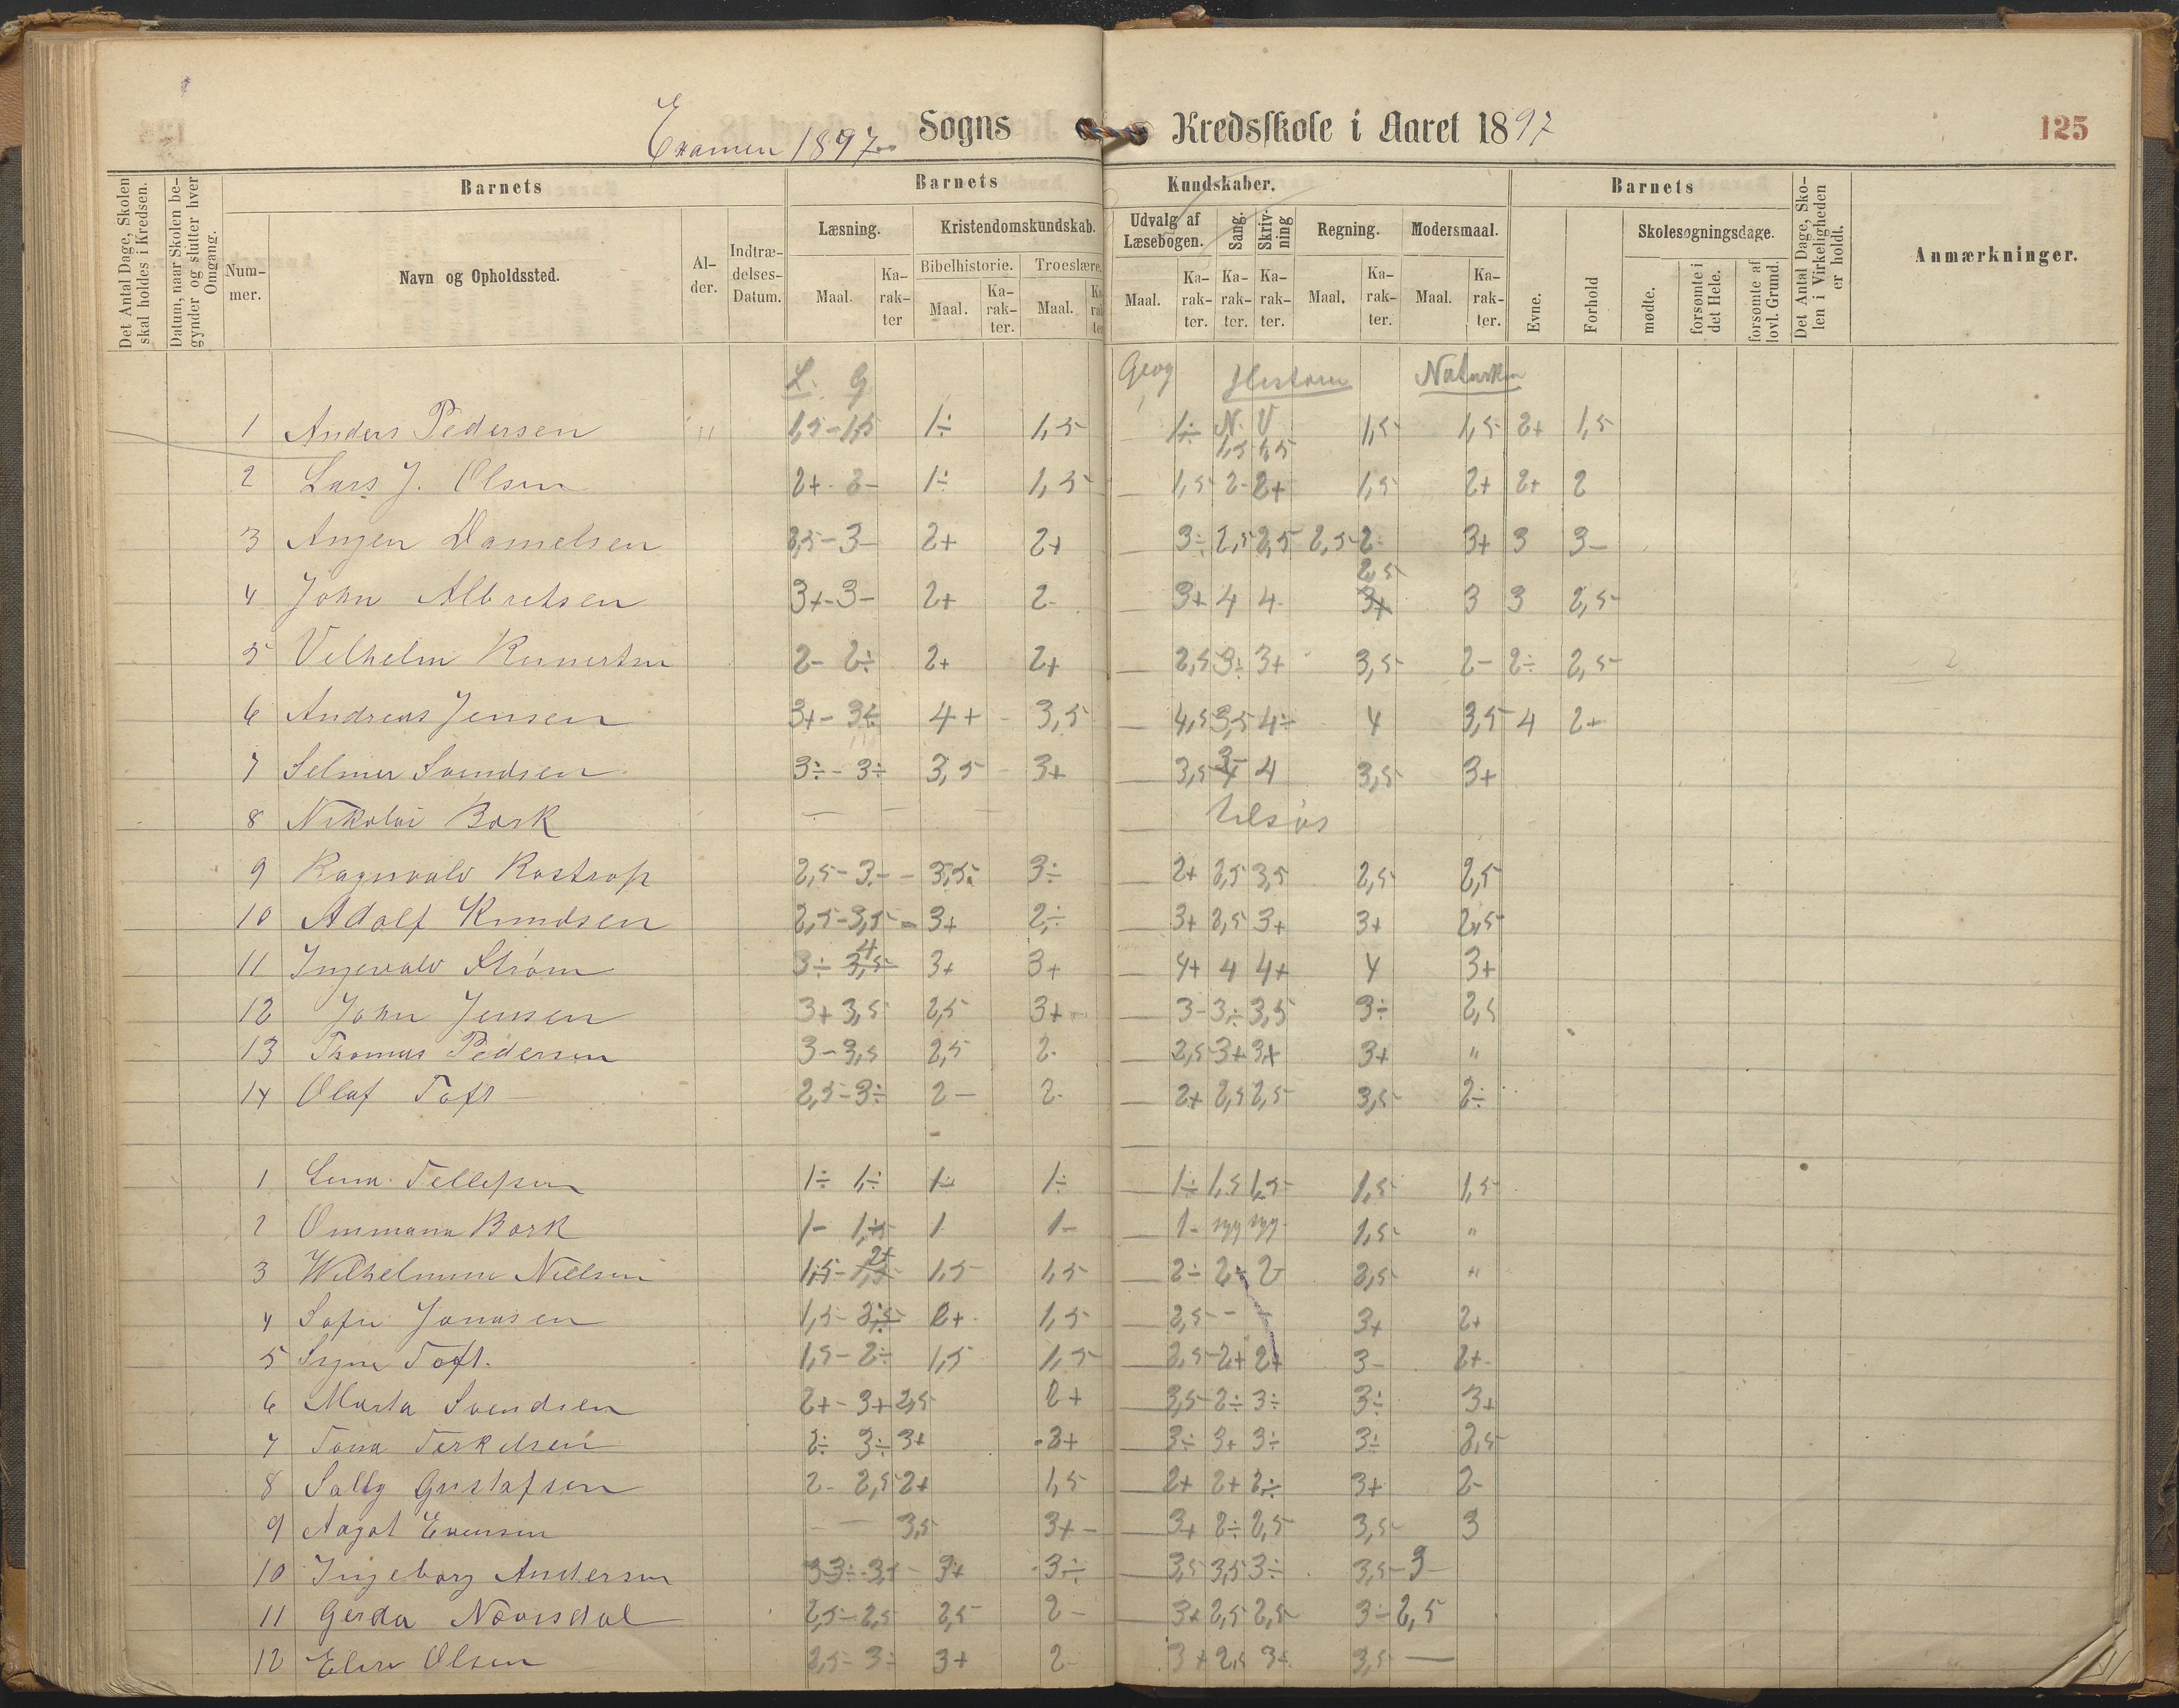 Examen 1897 Sogns Kredsskole i Aaret 1897 125
Det Antal Dage, Skolen skal holdes i Kredsen.
Datum, naar Skolen begynder og slutter hver Omgang.
Barnets
Nummer.
Navn og Opholdssted.
Alder.
Indtrædelses-Datum.
Barnets Kundskaber.
Læsning. Maal. Karakter
Kristendomskundskab.
Bibelhistorie. Maal. Karakter.
Troeslære. Maal.
Udvalg af Læsebogen. Maal. Karakter.
Sang. Karakter.
Skrivning Karakter.
Regning. Maal. Karakter.
Modersmaal. Maal. Karakter.
Barnets
Evne.
Forhold
Skolesøgningsdage.
mødte.
forsømte i det Hele.
forsømte af lovl. Grund.
Det Antal Dage, Skolen i Virkeligheden er holdt.
Anmærkninger.
L. G Geog Historie
1 Anders Pedersen " 1,5-1,5 1÷ 1,5 1÷ N. V 1,5 1,5 2+ 1,5
1,5 1,5
2 Lars J. Olsen 2+ 1÷ 1,5 1,5 2- 2+ 1,5 2+ 2+ 2
3 Danielsen 3- 2+ 2+ 3÷ 2,5 2,5 2,5-2- 3+ 3 3-
2,5
4 John Albretsen 3+-3- 2+ 2- 3+ 4 4 3+ 3 3 2,5
5 Vilhelm 2- 2÷ 2+ 2+ 2,5 3÷ 3+ 3,5 2- 2÷ 2,5
6 Andreas Jensen 3+- 4+ 3,5 4,5 3,5 4÷ 4 3,5 4 2+
7 Selmer Svendsen 3÷-3÷ 3,5 3+ 3,5 4 4 3,5 3+
3-
8 Nikolai Bork — — — tilsjøs
9 Ragnvald Rostrop 2,5-3- 3,5 3÷ 2+ 2,5 3,5 2,5 2,5
10 Adolf Knudsen 2,5-3,5 3+ 2÷ 3+ 2,5 3+ 3+ 2,5
11 Ingevald Strøm 3÷ 3,5 4 3+ 3+ 4+ 4 4+ 4 3+
12 John Jensen 3+ 3,5 2,5 3+ 3- 3÷ 3,5 3÷ 2,5
13 Thomas Pedersen 3-3,5 2,5 2- 2,5 3+ 3+ 3+ "
14 Olaf Toft 2,5-3÷ 2- 2- 2+ 2,5 2,5 3,5 2÷
1 Tellefsen 1÷ 1÷ 1- 1÷ 1÷ 1,5 1,5 1,5 1,5
2 Ommana Bork 1- 1 1- 1- syg syg 1,5 "
3 Wilhelmine Nielsen 1,5- 2+ 1,5 1,5 2÷ 2- 2- 2,5 "
4 Sofie Jonasen 1,5- 2+ 1,5 2,5 - - 3+ 2+
5 Signe Toft. 1,5-2÷ 1,5 1,5 2,5 2+ 2+ 3- 2+
6 Marta Svendsen 2+-3+ 2,5 2+ 3,5 2÷ 3÷ 3÷ 3+
7 Tona Terkelsen 2÷ 3÷ 3+ 3+ 3÷ 3+ 3÷ 3÷ 2,5
8 Sally Gustafsen 2- 2,5 2+ 1,5 2+ 2+ 2÷ 3+ 2-
9 Aagot Evensen — — 3,5 3+- 3+ 2÷ 2,5 3,5 3
10 Ingeborg Andersen 3+ 3÷ 3,5 3,5 3÷ 3,5-3-
11 Gerda 2,5-2,5 2,5 2- 3+ 2,5 2,5 3÷2,5
12 Olsen 2,5-3÷ 3+ 2- 3+ 2,5 3+ 3,5 —